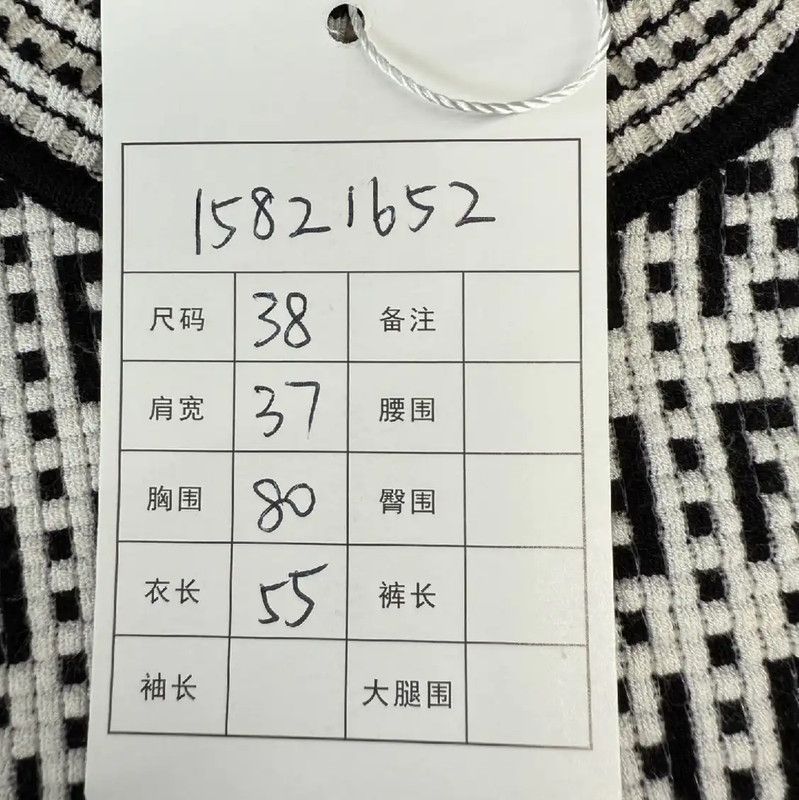 15821652
尺码 38 备注
肩宽 37 腰围
胸围 80 臀围
衣长 55 裤长
袖长 大腿围